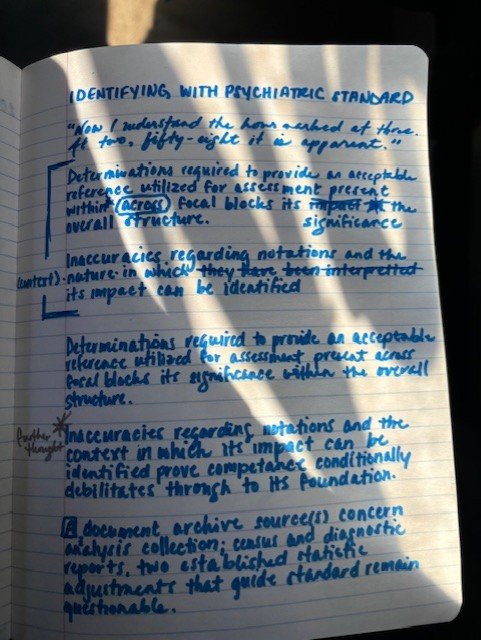 IDENTIFYING WITH PSYCHIATRIC STANDARD
"Now I understand the hour marked at three.
At two, fifty-eight it is apparent."
Determinations required to provide an acceptable
reference utilized for assessment present
within across focal blocks its impact the
overall structure. significance
Inaccuracies regarding notations and the
(context) nature in which they have been interpretted
its impact can be identified
Determinations required to provide an acceptable
reference utilized for assessment present across
focal blocks its significance within the overall
structure.
further thought * Inaccuracies regarding notations and the
context in which its impact can be
identified prove competance conditionally
debilitates through to its foundation.
A document archive source(s) concern
analysis collection; census and diagnostic
reports. two established statistic
adjustments that guide standard remain
questionable.